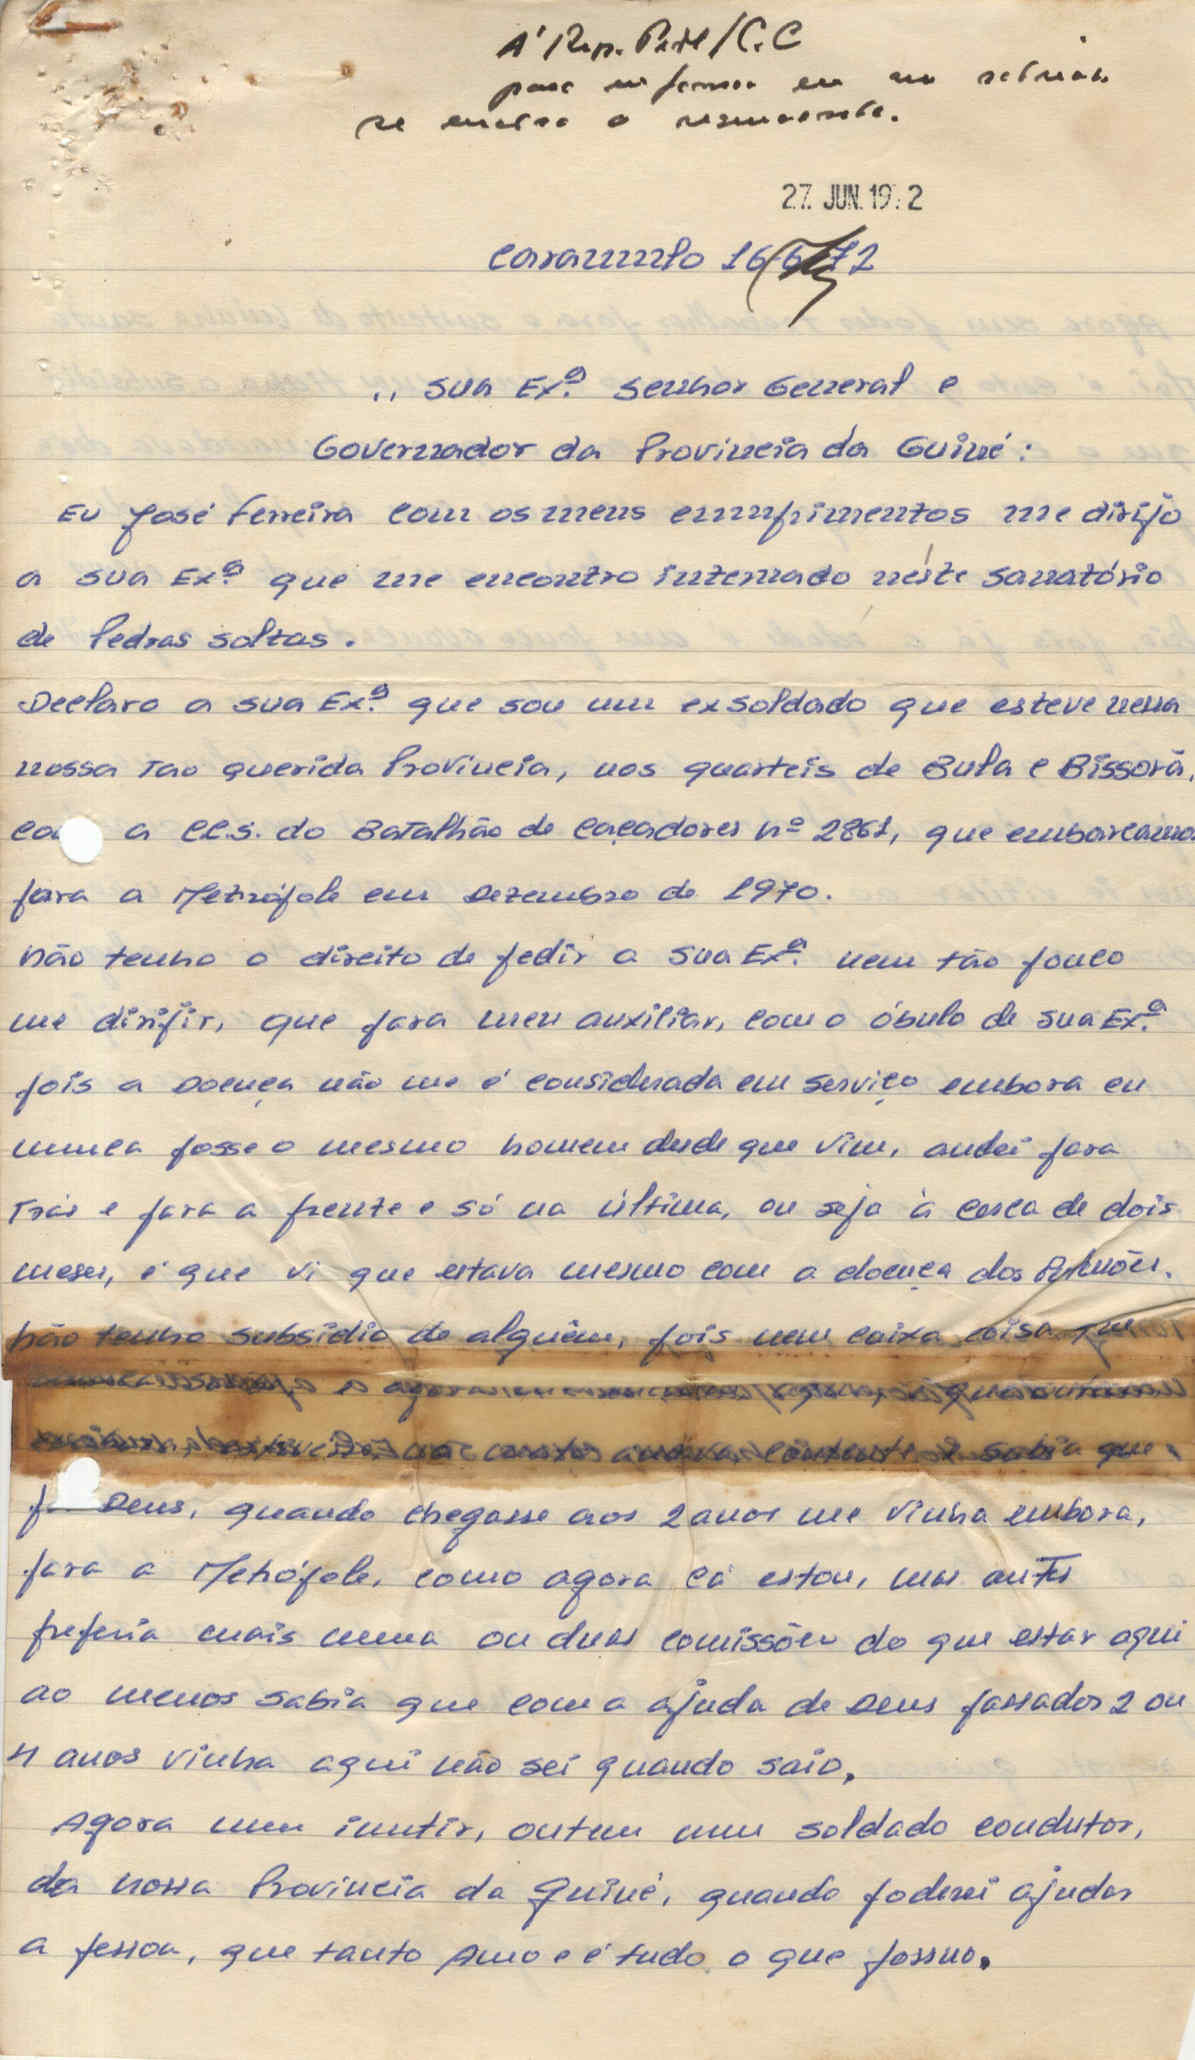 A' Rep. /C.C
para informar
se
27. JUN. 19 2
Caramulo 16 6 72
,, Sua Exª. Senhor General e
Governador da Província da Guiné:
Eu José Ferreira com os meus cumprimentos me dirijo
a sua Exª que me encontro internado néste Sanatório
de Pedras soltas.
Declaro a sua Exª. que sou um exsoldado que esteve nessa
nossa Tao querida Província, nos quarteis de Bula e Bissorã,
a CC.S. do Batalhão de Caçadores nº 2861, que embarcamos
para a Metrópole em Dezembro de 1970.
Não tenho o direito de pedir a Sua Exª. nem tão pouco
me dirijir, que para meu auxiliar, com o óbulo de sua Exª.
pois a Doença não me é considerada em serviço embora eu
nunca fosse o mesmo homem desde que vim, andei para
Trás e para a frente e só na última, ou seja à cerca de dois
meses, é que vi que estava mesmo com a doença dos Pulmões.
Não tenho subsídio de alguêm, pois nem caixa coisa que
e agora
não sabia que
Deus, quando chegasse aos 2 anos me vinha embora,
para a Metrópole, como agora cá estou, mas antes
preferia mais uma ou duas comissões do que estar aqui
ao menos sabia que com a ajuda de Deus passados 2 ou
4 anos vinha aqui não sei quando saio.
Agora um inutir, ontem um soldado condutor,
da nossa Província da Guiné, quando poderei ajudar
a pessoa, que tanto Amo e é tudo o que possuo.